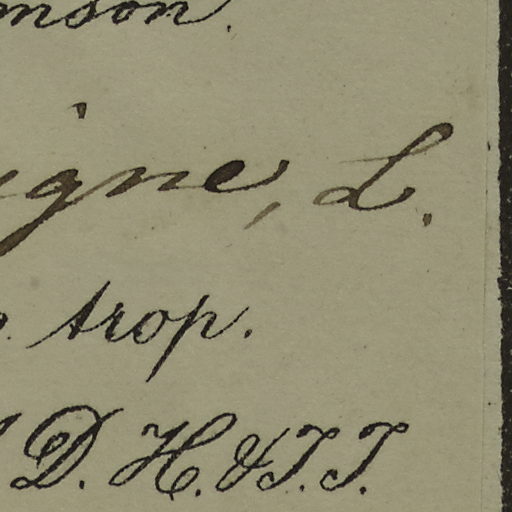 mson.
igne, L.
. trop.
D. H. & T. T.